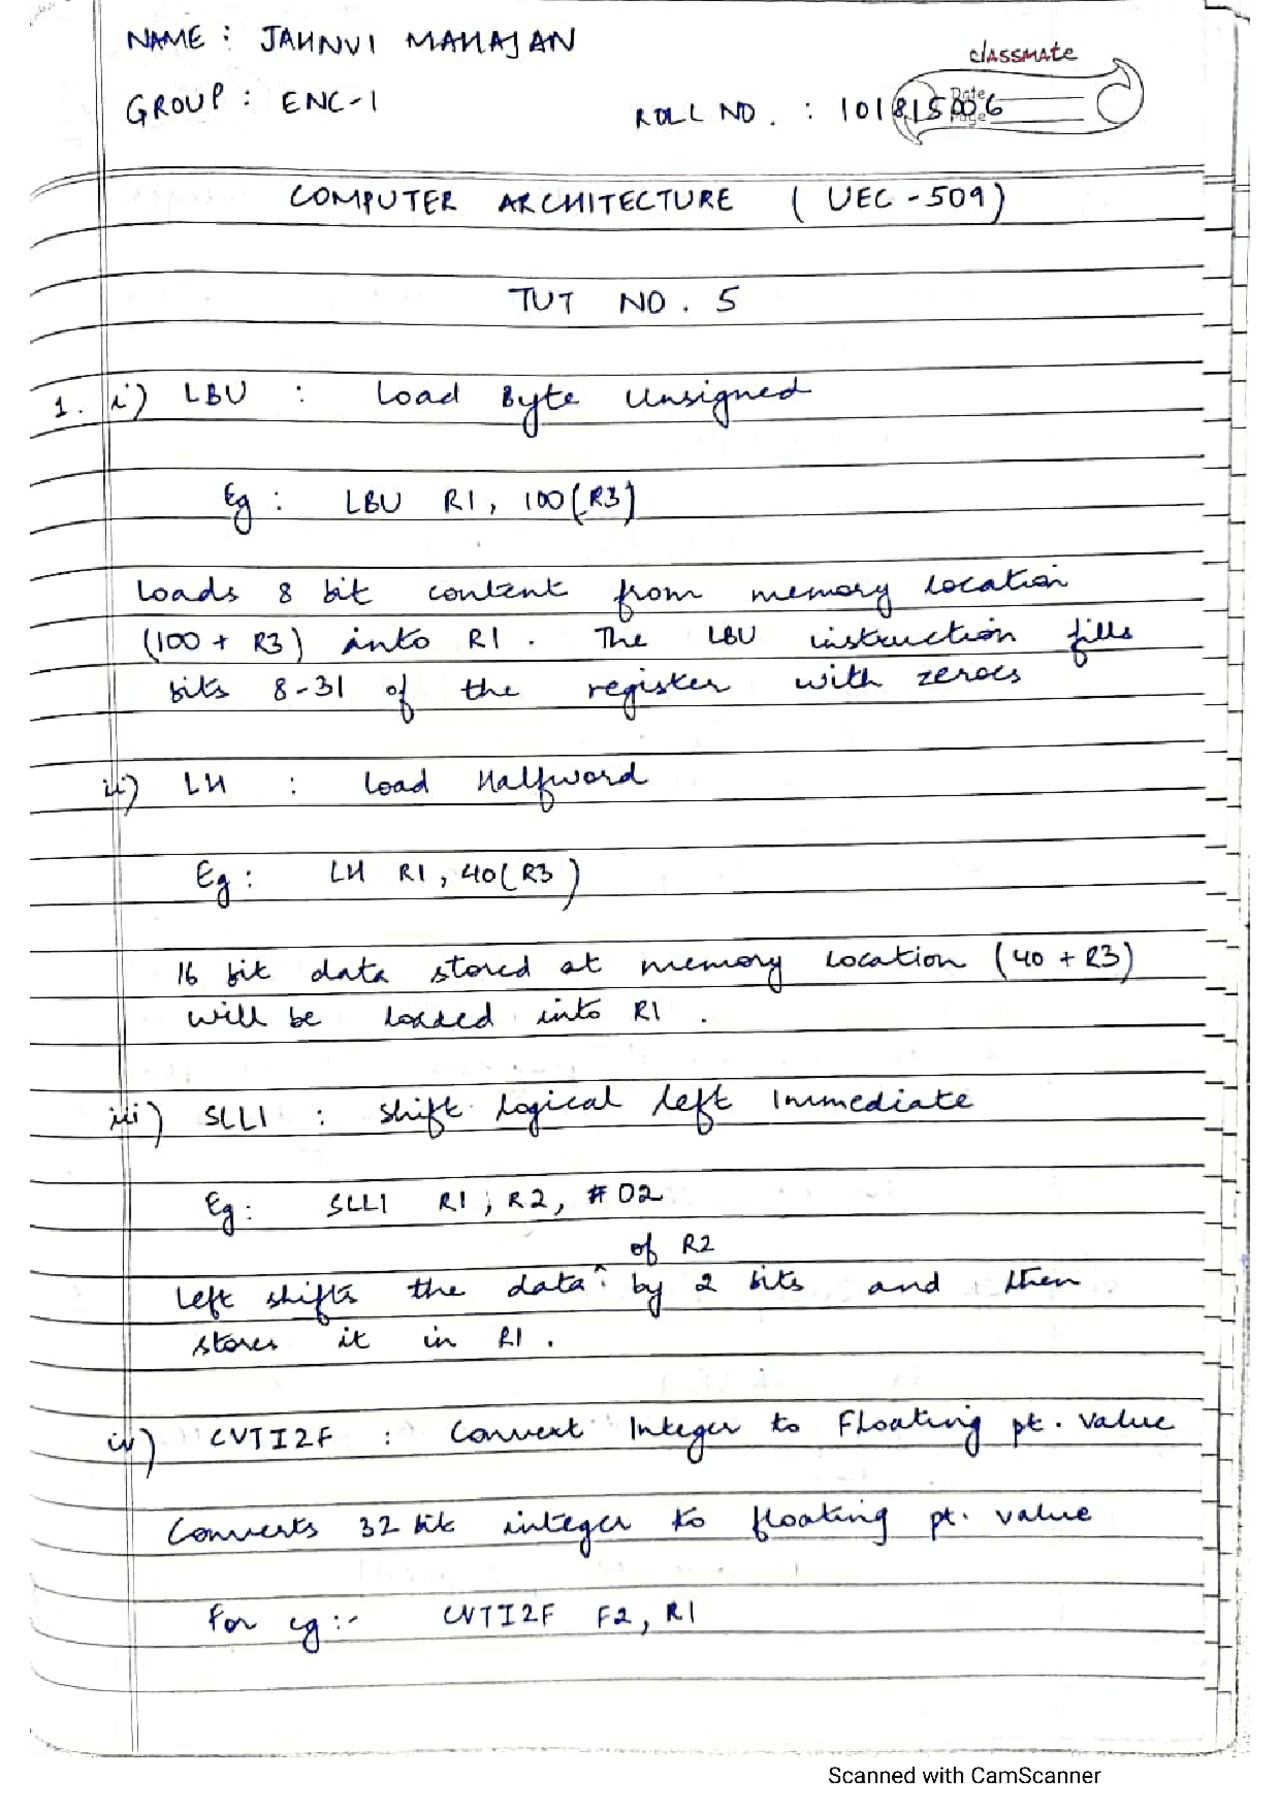 NAME : JAHNVI MAHAJAN
classmate
Date
Page
GROUP : ENC-1
ROLL NO. : 101815006
COMPUTER ARCHITECTURE (UEC-509)
TUT NO. 5
1. i) LBU : Load Byte Unsigned
Eg : LBU R1, 100(R3)
Loads 8 bit content from memory location
(100 + R3) into R1. The LBU instruction fills
bits 8-31 of the register with zeroes
ii) LH : Load Halfword
Eg : LH R1, 40(R3)
16 bit data stored at memory location (40 + R3)
will be loaded into R1.
iii) SLLI : Shift Logical Left Immediate
Eg : SLLI R1, R2, #02
of R2
Left shifts the data ^ by 2 bits and then
stores it in R1.
iv) CVTI2F : Convert Integer to Floating pt. Value
Converts 32 bit integer to floating pt. value
For eg :- CVTI2F F2, R1
Scanned with CamScanner